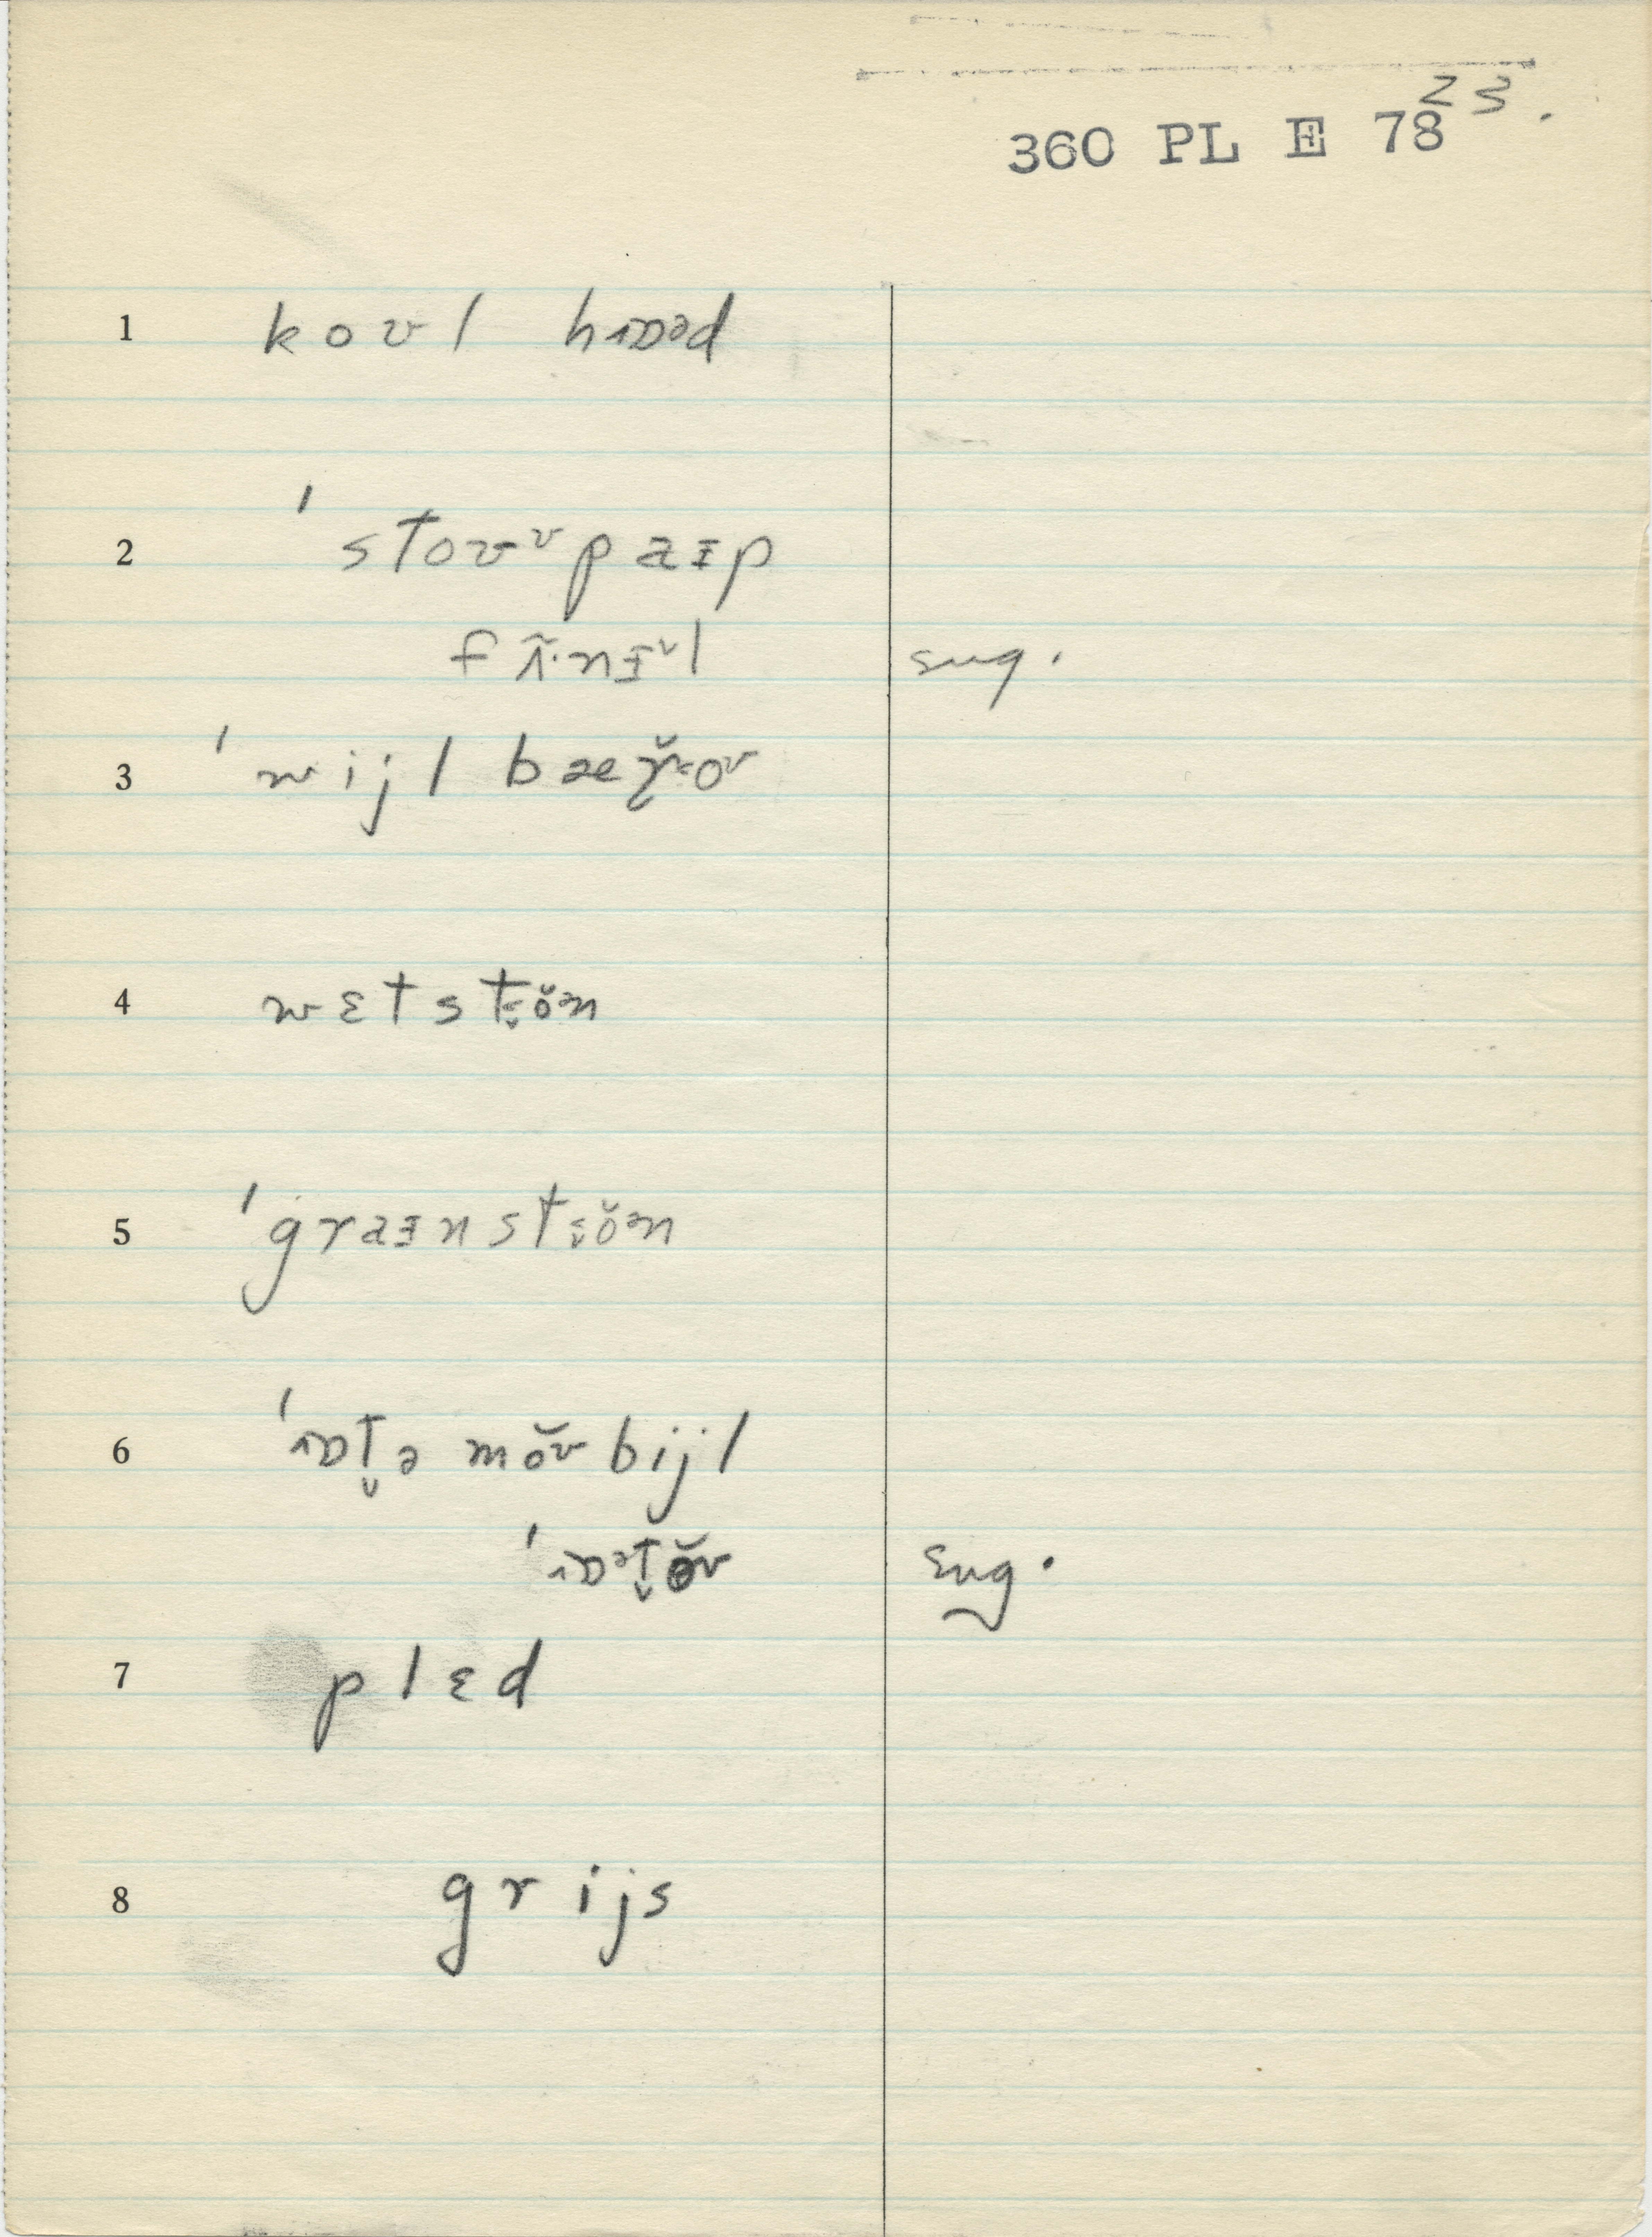 23.
360 PL E 78
1 koʊl hɒəd
2 ˈstoʊᶷpaɪp
fʌ̃·nɪᶷl sug.
3 ˈwijl bæɽ̆ɛoʊ
4 wɛtstɛ̯ŏən
5 ˈgraɪnstɛ̯ŏən
6 ˈɒt̬ə mŏʊbijl
ˈɒət̬ŏʊ sug.
7 plɛd
8 grijs